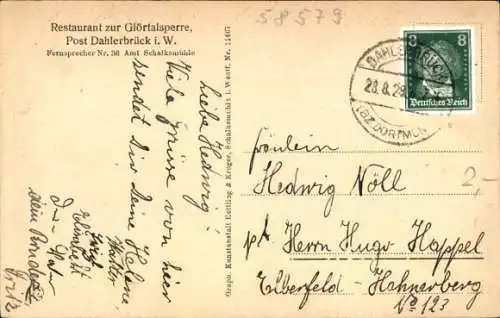 58579
Restaurant zur Glörtalsperre,
Post Dahlerbrück i. W.
Fernsprecher Nr. 36 Amt Schalksmühle
Liebe Hedwig!
Viele Grüsse von hier
sendet Dir Deine Helene,
Walter
Elisabeth
dein Bruder
Fritz
Graph. Kunstanstalt & Krüger, Schalksmühle i. Westf. Nr.
DAHLERBRÜCK
28.8.28
(BZ DORTMUND)
8 8
Deutsches Reich
Fräulein
Hedwig Nöll
2,-
p. Adr. Herrn Hugo Happel
Elberfeld - Hahnerberg
No 123